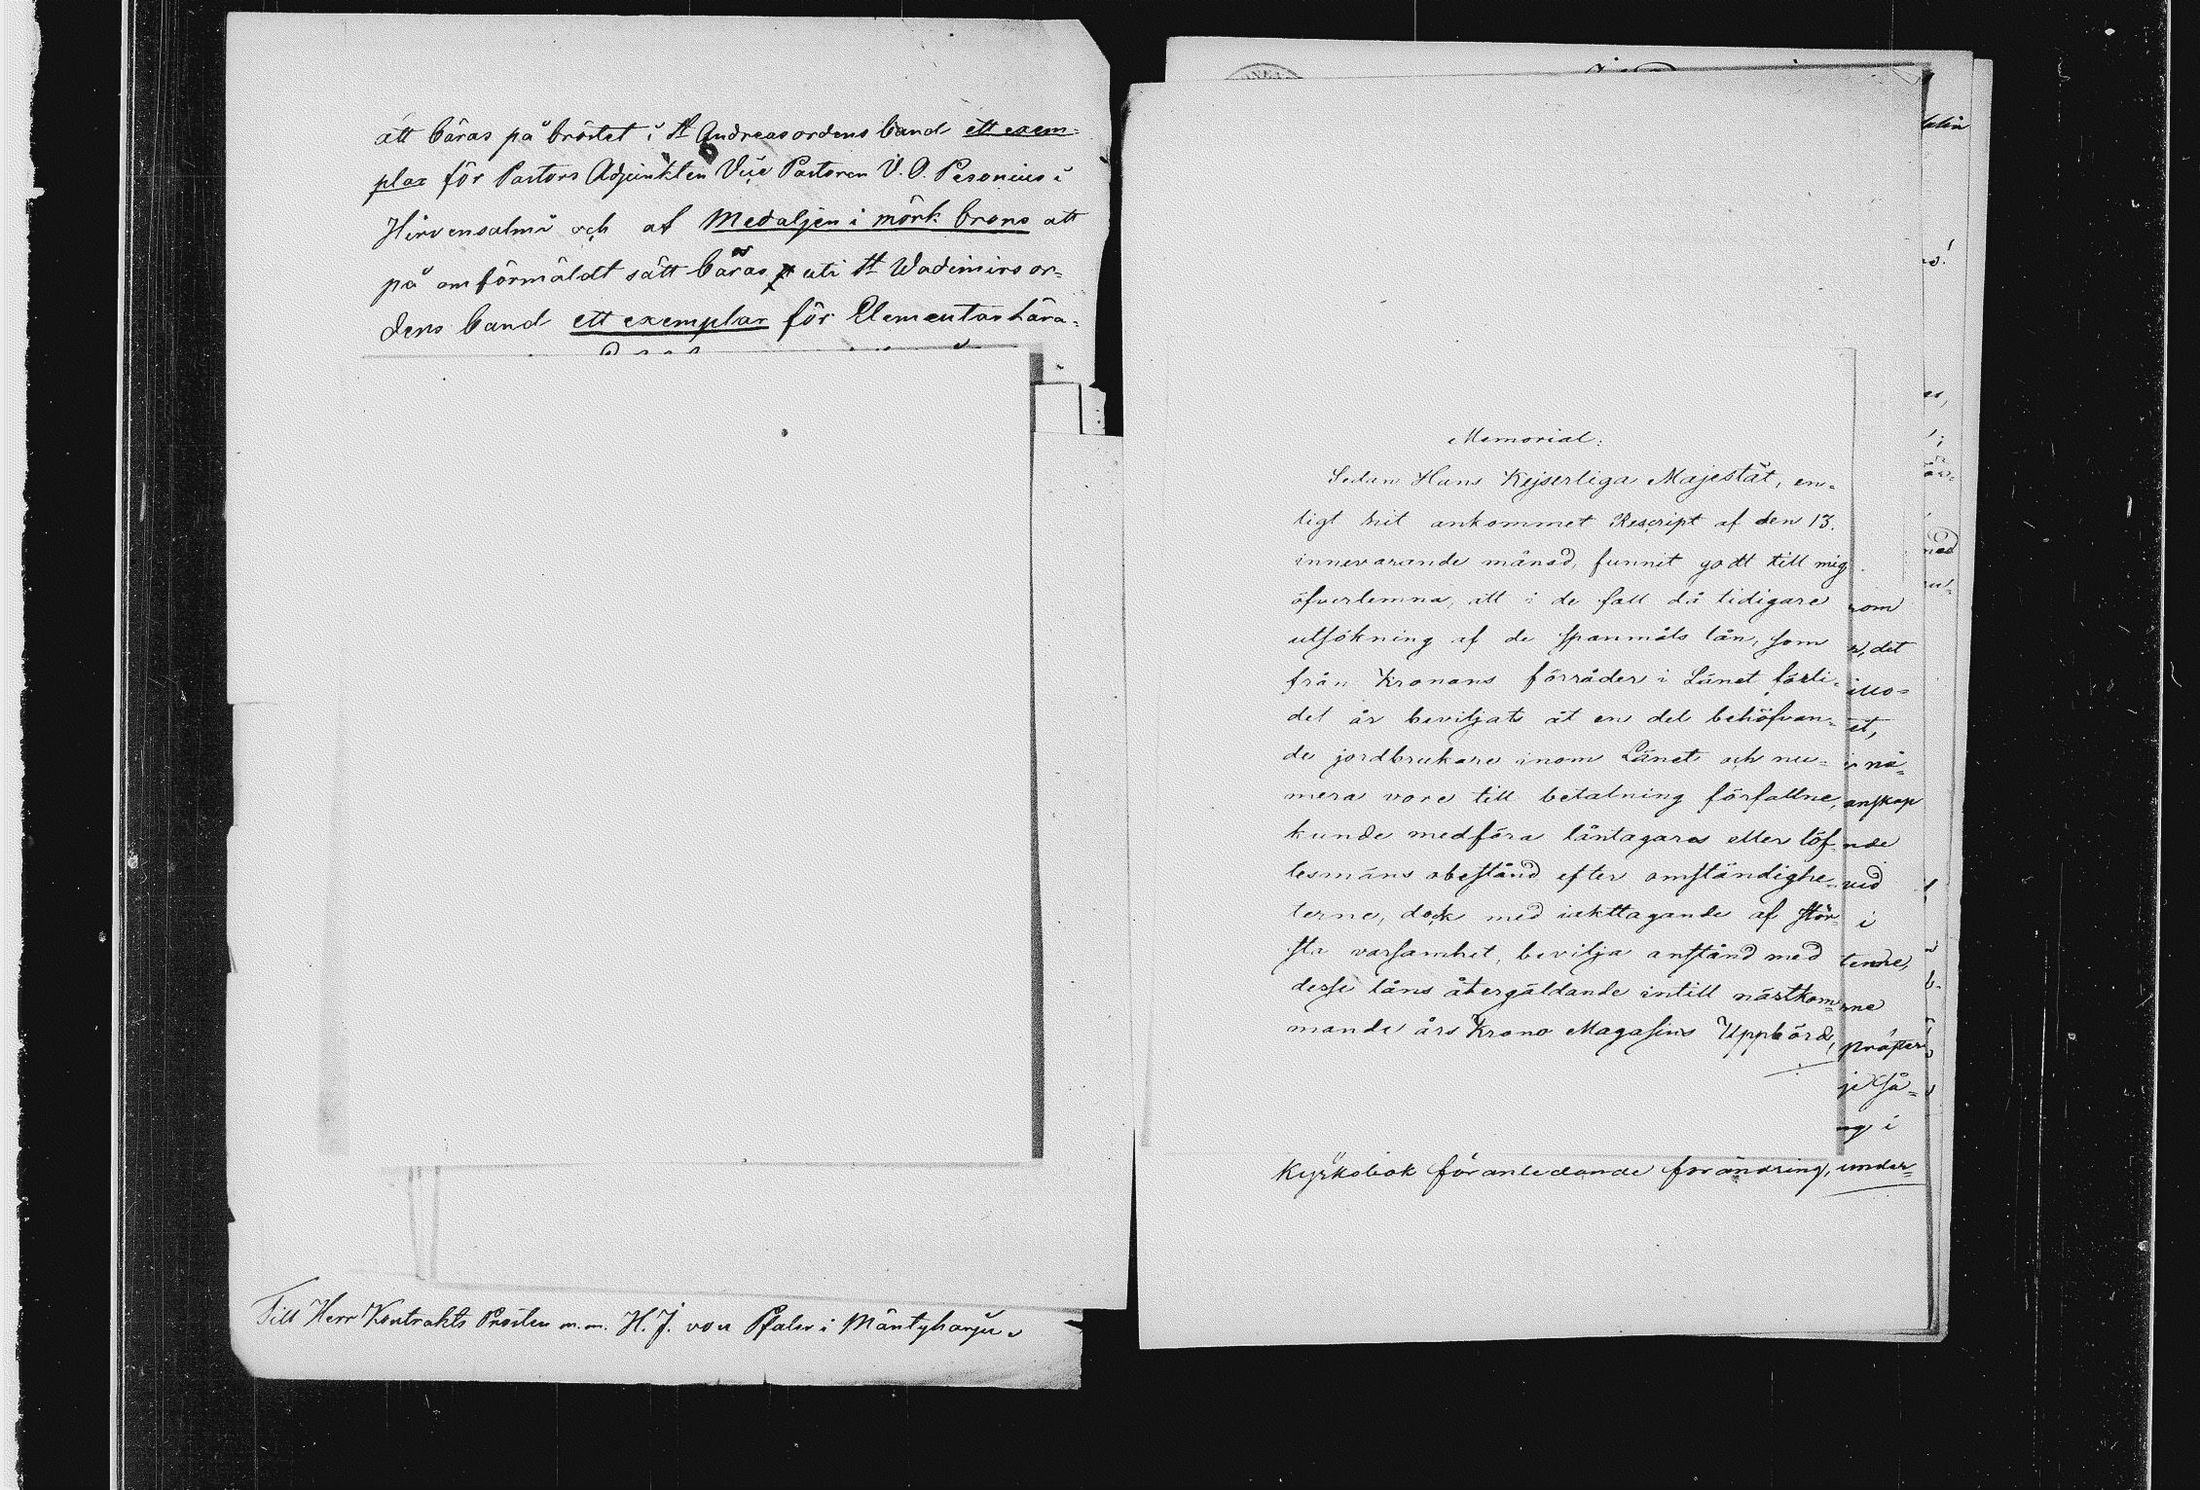 att bäras på bröstet i St Andreasordens band ett exem-
plar för Pastors Adjunkten Vice Pastoren V. O. Pesonius i
Hirvensalmi och af Medaljen i mörk brons att
på omförmäldt sätt bäras uti St Wadimirsor-
dens band ett exemplar för Elementar Lära-
Till Herr Kontrakts Prosten m.m. H. J. von Pfaler i Mäntyharju.
Memorial.
Sedan Hans Kejserliga Majestät, en-
ligt hit ankommet Rescript af den 13.
innevarande månad, funnit godt till mig
öfverlemna, att i de fall då tidigare
utsökning af de spanmåls lån, som
från Kronans förråder i Länet förli-
det år beviljats åt en del behöfvan-
de jordbrukare inom Länet och nu-
mera vore till betalning förfallne,
kunde medföra låntagares eller löf-
tesmäns obestånd efter omständighe-
terne, dock med iakttagande af stör-
sta varsamhet, bevilja anstånd med
desse låns återgäldande intill nästkom-
mande års Krono Magasins Uppbörd,
som
det
et,
nå-
anskap
nde
vid
i
tende,
je så-
ng i
Kyrkobok föranledande forändring, under-